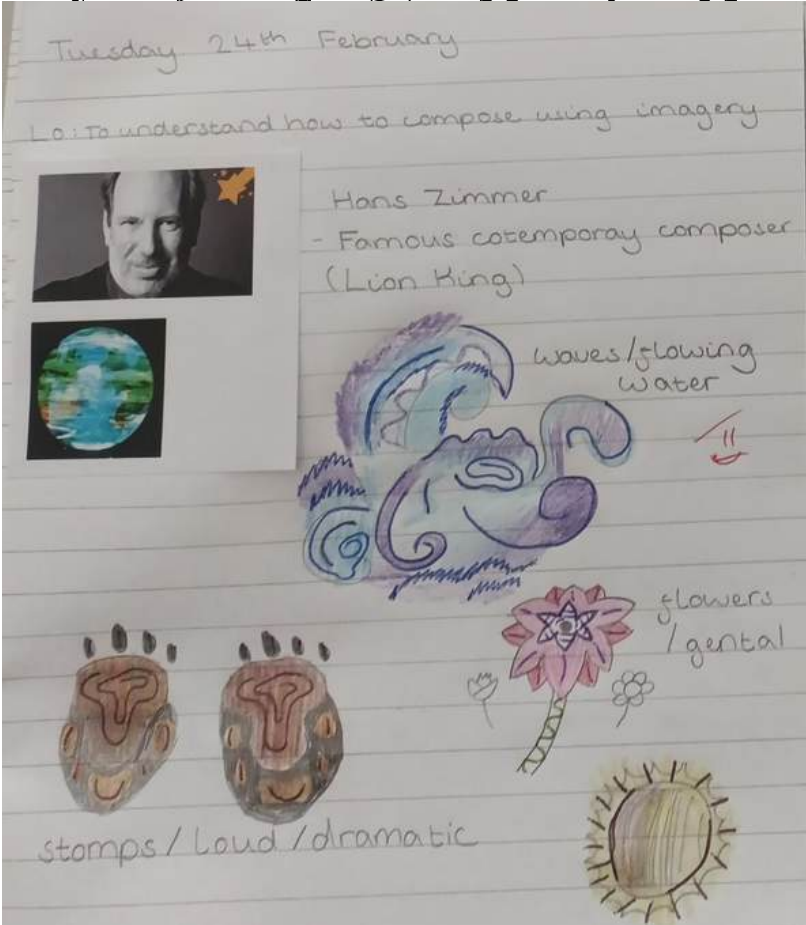 Tuesday 24th February
LO: To understand how to compose using imagery
Hans Zimmer
- Famous cotemporay composer
(Lion King)
waves/flowing
water
flowers
/gental
stomps/Loud/dramatic